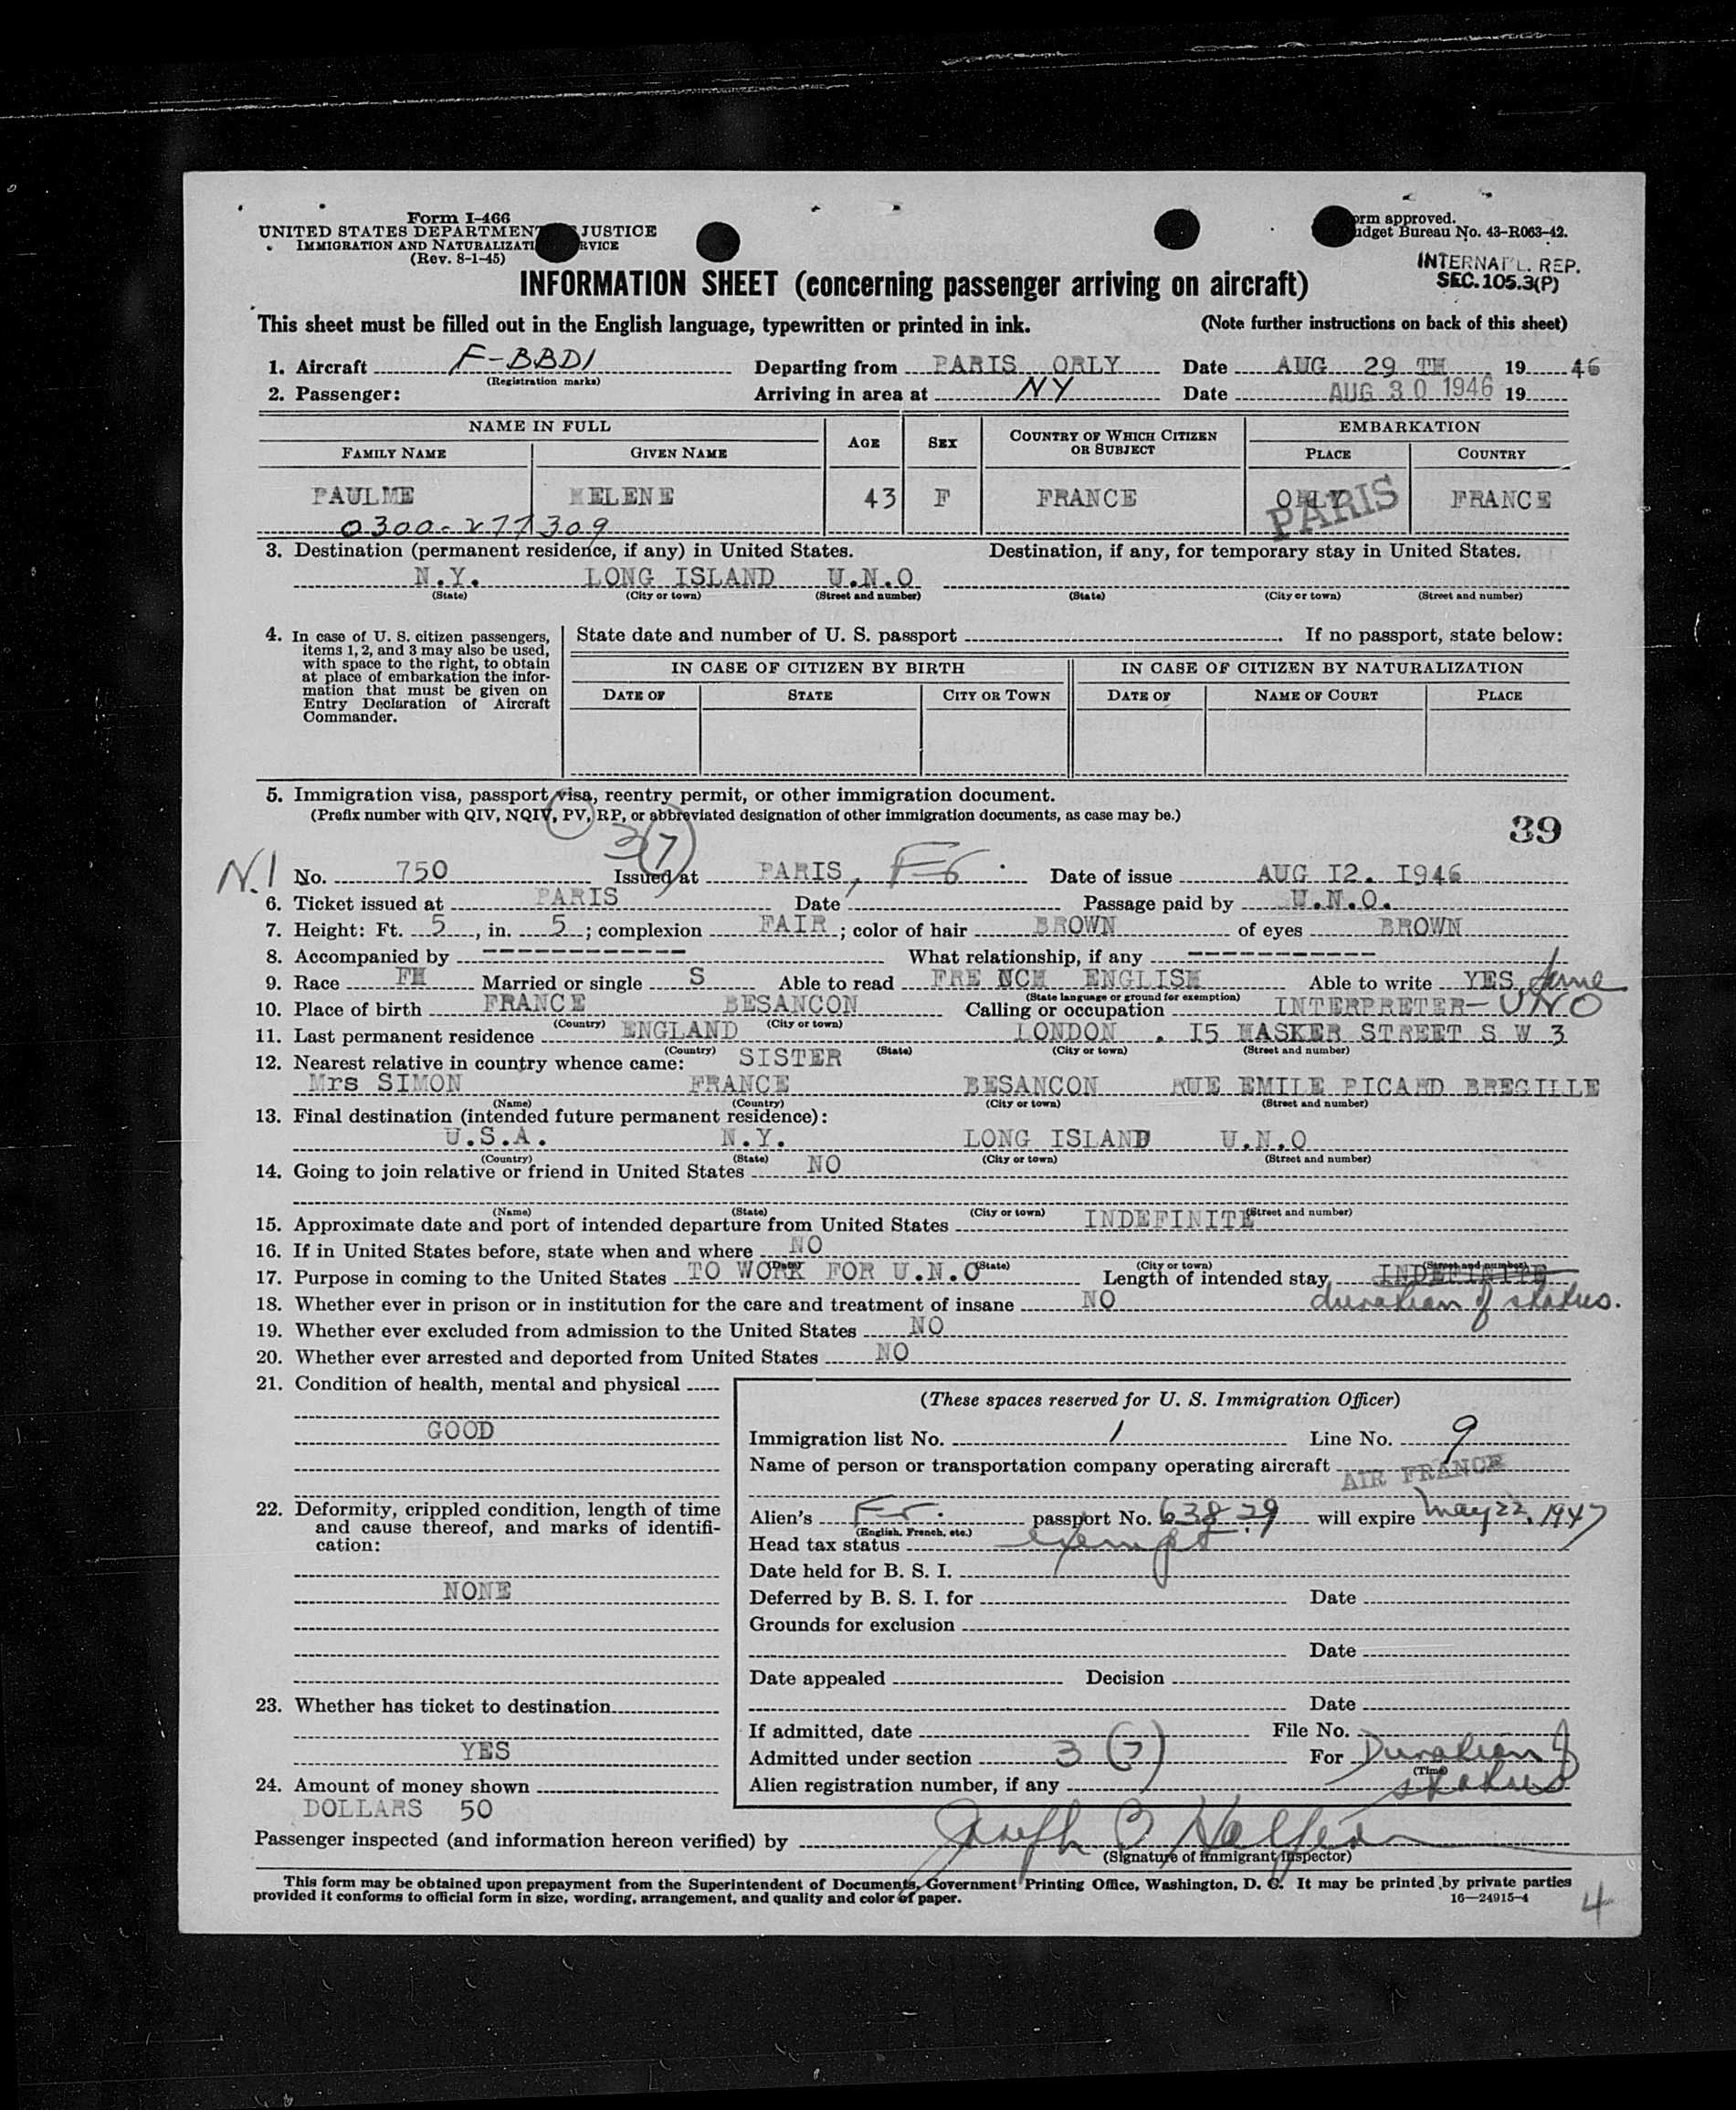 Form I-466
UNITED STATES DEPARTMENT JUSTICE
IMMIGRATION AND NATURALIZATI RVICE
(Rev. 8-1-45)
orm approved.
udget Bureau No. 43-R063-42.
INTERNAT'L. REP.
SEC. 105.3(P)
INFORMATION SHEET (concerning passenger arriving on aircraft)
This sheet must be filled out in the English language, typewritten or printed in ink. (Note further instructions on back of this sheet)
1. Aircraft F-BBDI Departing from PARIS ORLY Date AUG 29 TH 19 46
(Registration marks)
2. Passenger: Arriving in area at NY Date AUG 30 1946 19
NAME IN FULL AGE SEX COUNTRY OF WHICH CITIZEN OR SUBJECT EMBARKATION
FAMILY NAME GIVEN NAME PLACE COUNTRY
PAULME HELENE 43 F FRANCE ORLY PARIS FRANCE
0300-277309
3. Destination (permanent residence, if any) in United States. Destination, if any, for temporary stay in United States.
N.Y. LONG ISLAND U.N.O
(State) (City or town) (Street and number) (State) (City or town) (Street and number)
4. In case of U. S. citizen passengers, items 1, 2, and 3 may also be used, with space to the right, to obtain at place of embarkation the information that must be given on Entry Declaration of Aircraft Commander.
State date and number of U. S. passport . If no passport, state below:
IN CASE OF CITIZEN BY BIRTH IN CASE OF CITIZEN BY NATURALIZATION
DATE OF STATE CITY OR TOWN DATE OF NAME OF COURT PLACE
5. Immigration visa, passport visa, reentry permit, or other immigration document.
(Prefix number with QIV, NQIV, PV, RP, or abbreviated designation of other immigration documents, as case may be.)
39
3(7)
N.1 No. 750 Issued at PARIS, Fr. Date of issue AUG I2. I946
6. Ticket issued at PARIS Date Passage paid by U.N.O.
7. Height: Ft. 5, in. 5; complexion FAIR; color of hair BROWN of eyes BROWN
8. Accompanied by ------------ What relationship, if any ------------
9. Race FH Married or single S Able to read FRE NCH ENGLISH Able to write YES, same
(State language or ground for exemption)
10. Place of birth FRANCE BESANCON Calling or occupation INTERPRETER-UNO
(Country) (City or town)
11. Last permanent residence ENGLAND LONDON . I5 HASKER STREET S W 3
(Country) (State) (City or town) (Street and number)
12. Nearest relative in country whence came: SISTER
Mrs SIMON FRANCE BESANCON RUE EMILE PICARD BREGILLE
(Name) (Country) (City or town) (Street and number)
13. Final destination (intended future permanent residence):
U.S.A. N.Y. LONG ISLAND U.N.O
(Country) (State) (City or town) (Street and number)
14. Going to join relative or friend in United States NO
(Name) (State) (City or town) (Street and number)
15. Approximate date and port of intended departure from United States INDEFINITE
16. If in United States before, state when and where NO
(Date) (State) (City or town) (Street and number)
17. Purpose in coming to the United States TO WORK FOR U.N.O Length of intended stay INDEFINITE
18. Whether ever in prison or in institution for the care and treatment of insane NO duration of status.
19. Whether ever excluded from admission to the United States NO
20. Whether ever arrested and deported from United States NO
21. Condition of health, mental and physical
GOOD
22. Deformity, crippled condition, length of time and cause thereof, and marks of identification:
NONE
23. Whether has ticket to destination
YES
24. Amount of money shown
DOLLARS 50
(These spaces reserved for U. S. Immigration Officer)
Immigration list No. 1 Line No. 9
Name of person or transportation company operating aircraft AIR FRANCE
Alien's Fr. passport No. 63829 will expire May 22, 1947
(English, French, etc.)
Head tax status exempt
Date held for B. S. I.
Deferred by B. S. I. for Date
Grounds for exclusion
Date
Date appealed Decision
Date
If admitted, date File No.
Admitted under section 3 (7) For Duration of
(Time)
Alien registration number, if any status
Passenger inspected (and information hereon verified) by Joseph
(Signature of immigrant inspector)
This form may be obtained upon prepayment from the Superintendent of Documents, Government Printing Office, Washington, D. C. It may be printed by private parties
provided it conforms to official form in size, wording, arrangement, and quality and color of paper. 16—24915-4
4